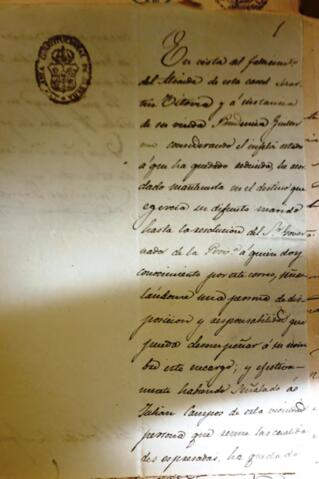 En vista del fallecim.to
del Alcaide de esta carcel Mar-
tin Vitoria y á instancia
de su viuda Prudencia
considerando el infeliz estado
á que ha quedado reducida, he acor-
dado mantenerla en el destino que
egercia su difunto marido
hasta la resolucion del S.r Gover-
nador de la Prov.a á quien doy
conocimiento por este correo, señа-
landome una persona de dis-
posicion y responsabilidad que
pueda desempeñar á su nom-
bre este encargo; y efectiva-
mente habiendo señalado á
Julian Campos de esta vecindad
persona que reune las cualida-
des espresadas, ha quedado